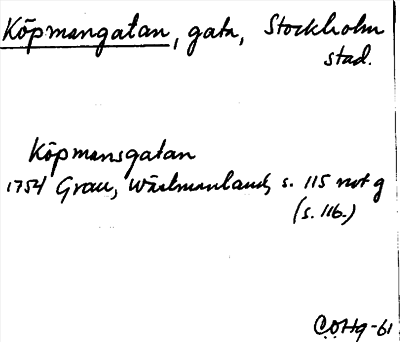 Köpmangatan, gata, Stockholm
stad.
Köpmansgatan
1754 Grau, Wästmanland, s. 115 not g
(s. 116.)
COHg-61